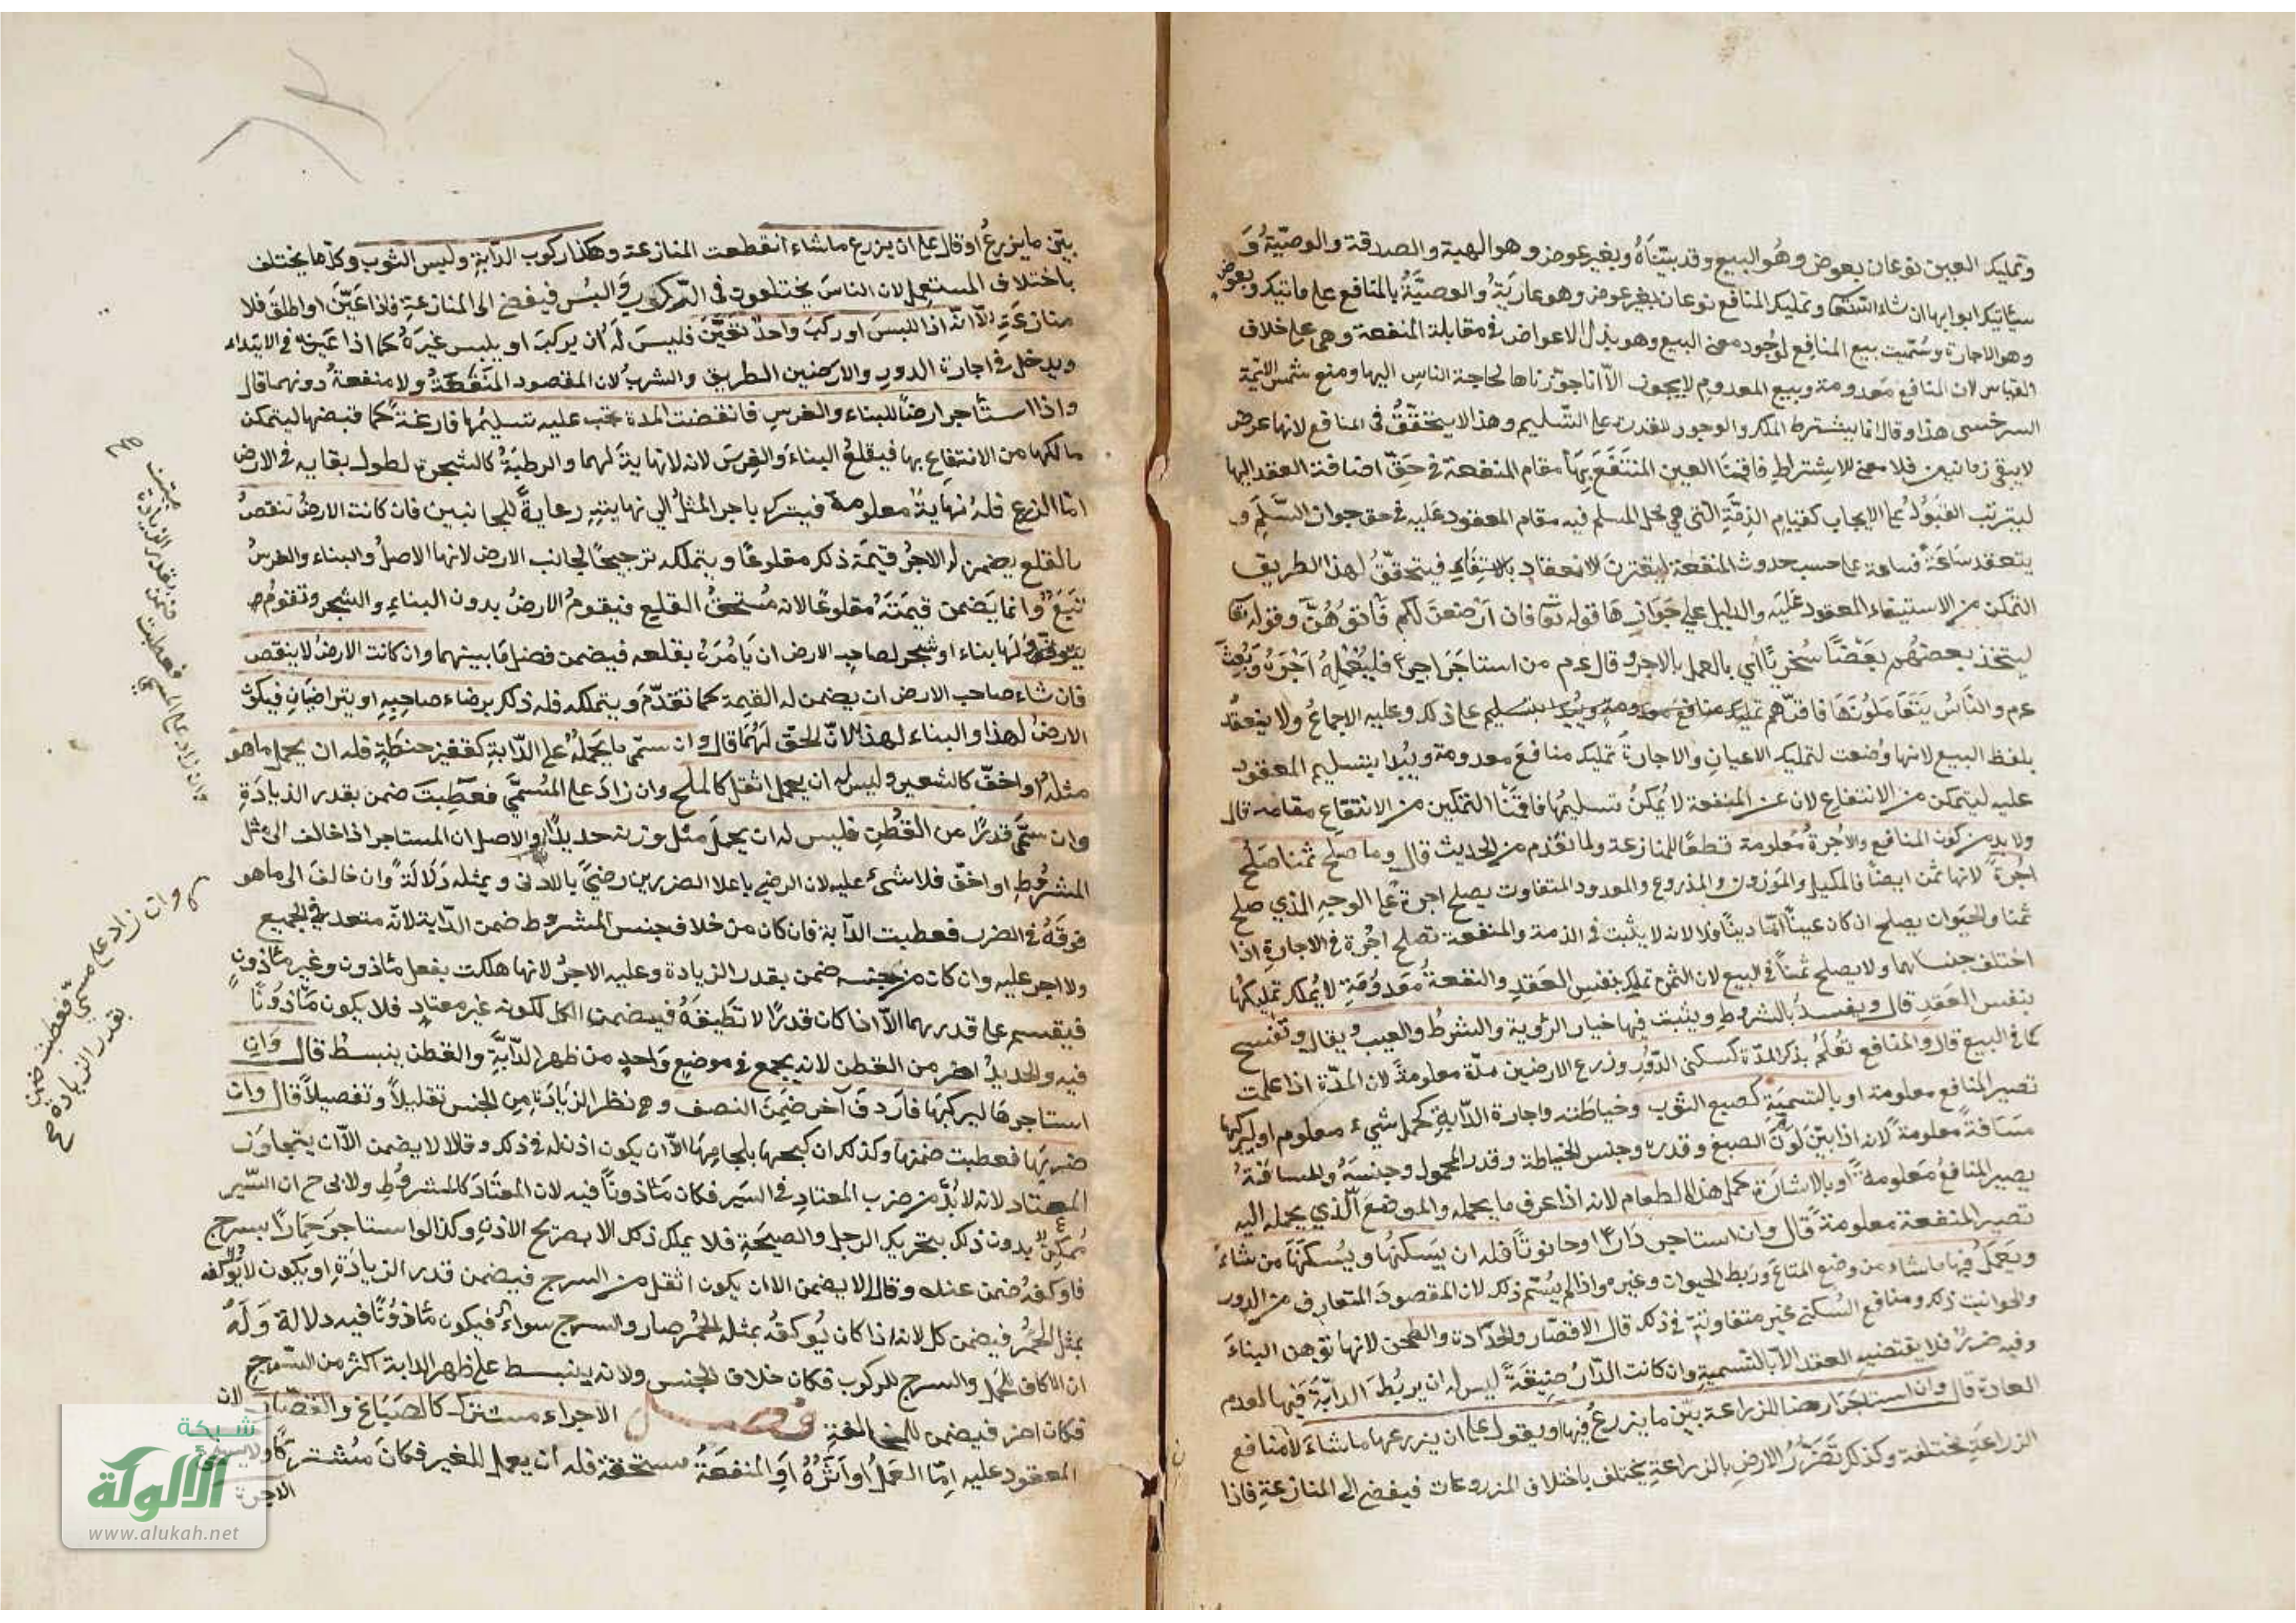 وتمليك العين نوعان بعوض وهو البيع وقد بيّنّاه وبغير عوض وهو الهبة والصدقة والوصيّة و
سيأتيك ابوابها ان شاء الله تعالى وتمليك المنافع نوعان بغير عوض وهو عارية والوصيّة بالمنافع على ما يأتيك وبعوض
وهو الاجارة وسُمّيت بيع المنافع لوجود معنى البيع وهو بذل الاعواض في مقابلة المنفعة وهي على خلاف
القياس لان المنافع معدومة وبيع المعدوم لا يجوز الّا انا جوّزناها لحاجة الناس اليها ومنع شمس الائمة
السرخسي هذا وقال انما يشترط الملك والوجود للقدرة على التسليم وهذا لا يتحقّق في المنافع لانها عرض
لا يبقى زمانين فلا معنى للاشتراط فاقمنا العين المنتفع بها مقام المنفعة في حقّ اضافة العقد اليها
ليترتب القبول على الايجاب كقيام الذمّة التي هي محل المسلم فيه مقام المعقود عليه في حق جواز السَّلَم و
ينعقد ساعةً فساعة على حسب حدوث المنفعة ليقترن الانعقاد بالاستيفاء فيتحقّق لهذا الطريق
التمكن من الاستيفاء المعقود عليه والدليل على جوازها قوله تعالى فان ارضعن لكم فآتوهنّ وقوله تعالى
ليتخذ بعضهم بعضًا سخريًّا أي بالعمل بالاجر وقال عم من استاجر اجيرا فليُعلمه اجره وبُعث
عم والناس يتعاملونها فاقرّهم تمليك منافع معدومة ويبدا بتسليم على ذلك وعليه الاجماع ولا ينعقد
بلفظ البيع لانها وُضعت لتمليك الاعيان والاجارة تمليك منافع معدومة ويبدا بتسليم المعقود
عليه ليتمكن من الانتفاع لان عن المنفعة لا يمكن تسليمها فاقمنا التمكين من الانتفاع مقامه قال
ولا بد من كون المنافع والاجرة معلومة قطعًا للمنازعة ولما تقدم من الحديث قال وما صلح ثمنا صلح
اجرة لانها ثمن ايضًا فالمكيل والموزون والمذروع والمعدود المتفاوت يصلح اجرة على الوجه الذي صلح
ثمنا والحيوان يصلح ان كان عينًا امّا دينًا فلا لانه لا يثبت في الذمة والمنفعة تصلح اجرة في الاجارة اذا
اختلف جنساهما ولا يصلح ثمنًا في البيع لان الثمن تملك بنفس العقد والمنفعة معدومة لا يمكن تمليكها
بنفس العقد قال ويفسد بالشروط ويثبت فيها خيار الرؤية والشرط والعيب ويقال وتفسخ
كما في البيع قال والمنافع تُعلم بذكر المدّة كسكنى الدور وزرع الارضين مدّة معلومة لان المدّة اذا علمت
تصير المنافع معلومة او بالتسمية كصبع الثوب وخياطته واجارة الدّابة كحمل شيء معلوم او ليركبها
مسافة معلومة لانه اذا بيّن لون الصبغ وقدره وجنس الخياطة وقدر المحمول وجنسه والمسافة
يصير المنافع معلومة او بالاشارة كحمل هذا الطعام لانه اذا عرف ما يحمله والموضع الّذي يحمله اليه
تصير المنفعة معلومة قال وان استاجر دارا او حانوتًا فله ان يسكنها ويُسكنها من شاء
ويعمل فيها ما شاء من وضع المتاع وربط الحيوان وغيره واذا لم يسمّ ذلك لان المقصود المتعارف من الدور
والحوانيت ذلك ومنافع السكنى غير متفاوتة في ذلك قال الا القصّار والحدّادة والطحن لانها توهن البناء
وفيه ضرر فلا يقتضيه العقد الا بالتسمية وان كانت الدّار ضيقة ليس له ان يربط الدّابّة فيها لعدم
العادة قال وان استاجر ارضا للزراعة بيّن ما يزرع فيها او يقول على ان يزرعها ما شاء لأن منافع
الزراعة مختلفة وكذلك تضرّر الارض بالزراعة يختلف باختلاف المزروعات فيفضي الى المنازعة فاذا
بيّن ما يزرع او قال على ان يزرع ما شاء انقطعت المنازعة وهكذا ركوب الدّابة ولبس الثوب وكلّ ما يختلف
باختلاف المستعمل لان الناس يختلفون في الركوب واللبس فيفضي الى المنازعة فاذا عيّن او اطلق فلا
منازعة الّا انّه اذا البس او ركب واحد تعيّن فليس له ان يركب او يلبس غيره كما اذا عيّنه في الابتداء
ويدخل في اجارة الدور والارضين الطريق والشرب لان المقصود المنفعة ولا منفعة دونهما قال
واذا استأجر ارضًا للبناء والغرس فانقضت المدة يجب عليه تسليمها فارغة كما قبضها ليتمكن
مالكها من الانتفاع بها فيقلع البناء والغرس لانه لا نهاية لهما والرطبة كالشجرة لطول بقايه في الارض
امّا الزرع فله نهاية معلومة فيترك باجر المثل الى نهايته رعاية للجانبين فان كانت الارض تنقص
بالقلع يضمن له الاجر قيمة ذلك مقلوعًا ويتملكه ترجيحًا لجانب الارض لانها الاصل والبناء والغرس
تبع وانما يضمن قيمته مقلوعًا لانه مستحق القلع فيقوم الارض بدون البناء والشجر وتقوم
ولها بناء او شجر لصاحب الارض ان يأمره بقلعه فيضمن فضل ما بينهما وان كانت الارض لا ينقص
فان شاء صاحب الارض ان يضمن له القيمة كما تقدّم ويتملكه فله ذلك برضاء صاحبه او يتراضيان فيكون
الارض لهذا والبناء لهذا لانّ الحق لهما قال وان سمّى ما يحمله على الدّابة كقفيز حنطة فله ان يحمل ما هو
مثله او اخفّ كالشعير وليس له ان يحمل اثقل كالملح وان زاد على المُسمّى فعطبت ضمن بقدر الزيادة
وان سمّى قدرًا من القطن فليس له ان يحمل مثل وزنه حديدًا والاصل ان المستاجر اذا خالف الى مثل
المشروط او اخفّ فلا شيء عليه لان الرضى باعلا الضررين رضىً بالادنى وبمثله دلالة وان خالف الى ما هو
فوقه في الضرر فعطبت الدّابة فان كان من خلاف جنس المشروط ضمن الدّابة لانّه متعد في الجميع
ولا اجر عليه وان كان من جنسه ضمن بقدر الزيادة وعليه الاجر لانها هلكت بفعل مأذون وغير مأذون
فيقسم على قدرهما الّا اذا كان قدرًا لا تطيقه فيضمن الكل لكونه غير معتاد فلا يكون مأذونًا
فيه والحديد اضر من القطن لانه يجمع في موضع واحد من ظهر الدّابّة والقطن ينبسط قال وان
استاجرها ليركبها فاردف آخر ضمن النصف وهو نظر الزيادة من الجنس تقليلًا وتفصيلًا قال وان
ضربها فعطبت ضمنها وكذلك ان كبحها بلجامها الّا ان يكون اذن له في ذلك وقالا لا يضمن الّا ان يتجاوز
المعتاد لانه لا بدّ من ضرب المعتاد في السير فكان مأذونًا فيه لان المعتاد كالمشروط ولابي ح ان السّير
ممكن بدون ذلك بتحريك الرجل والصيحة فلا يملك ذلك الا بصريح الاذن وكذا لو استاجر حمارًا بسرج
فاوكفه ضمن عنده وقالا لا يضمن الا ان يكون اثقل من السرج فيضمن قدر الزيادة او يكون لا يوكف
بمثل الحمر فيضمن كل لانه اذا كان يوكف بمثله الحمر صار والسرج سواء فيكون مأذونًا فيه دلالة وله
ان الاكاف للحمل والسرج للركوب فكان خلاف الجنس ولانه ينبسط على ظهر الدابة اكثر من السّرج
فكان اضر فيضمن للمخالفة فصل الاجراء مشترك كالصباغ والقصّار لان
المعقود عليه امّا العمل او اثره او المنفعة مستحقة فله ان يعمل للغير فكان مشتركًا ولا يستحق
الاجرة
وان زاد على المسمى فعطبت ضمن بقدر الزيادة
وان زاد على مسمى فعطبت ضمن
بقدر الزيادة صح
شبكة
الألوكة
www.alukah.net